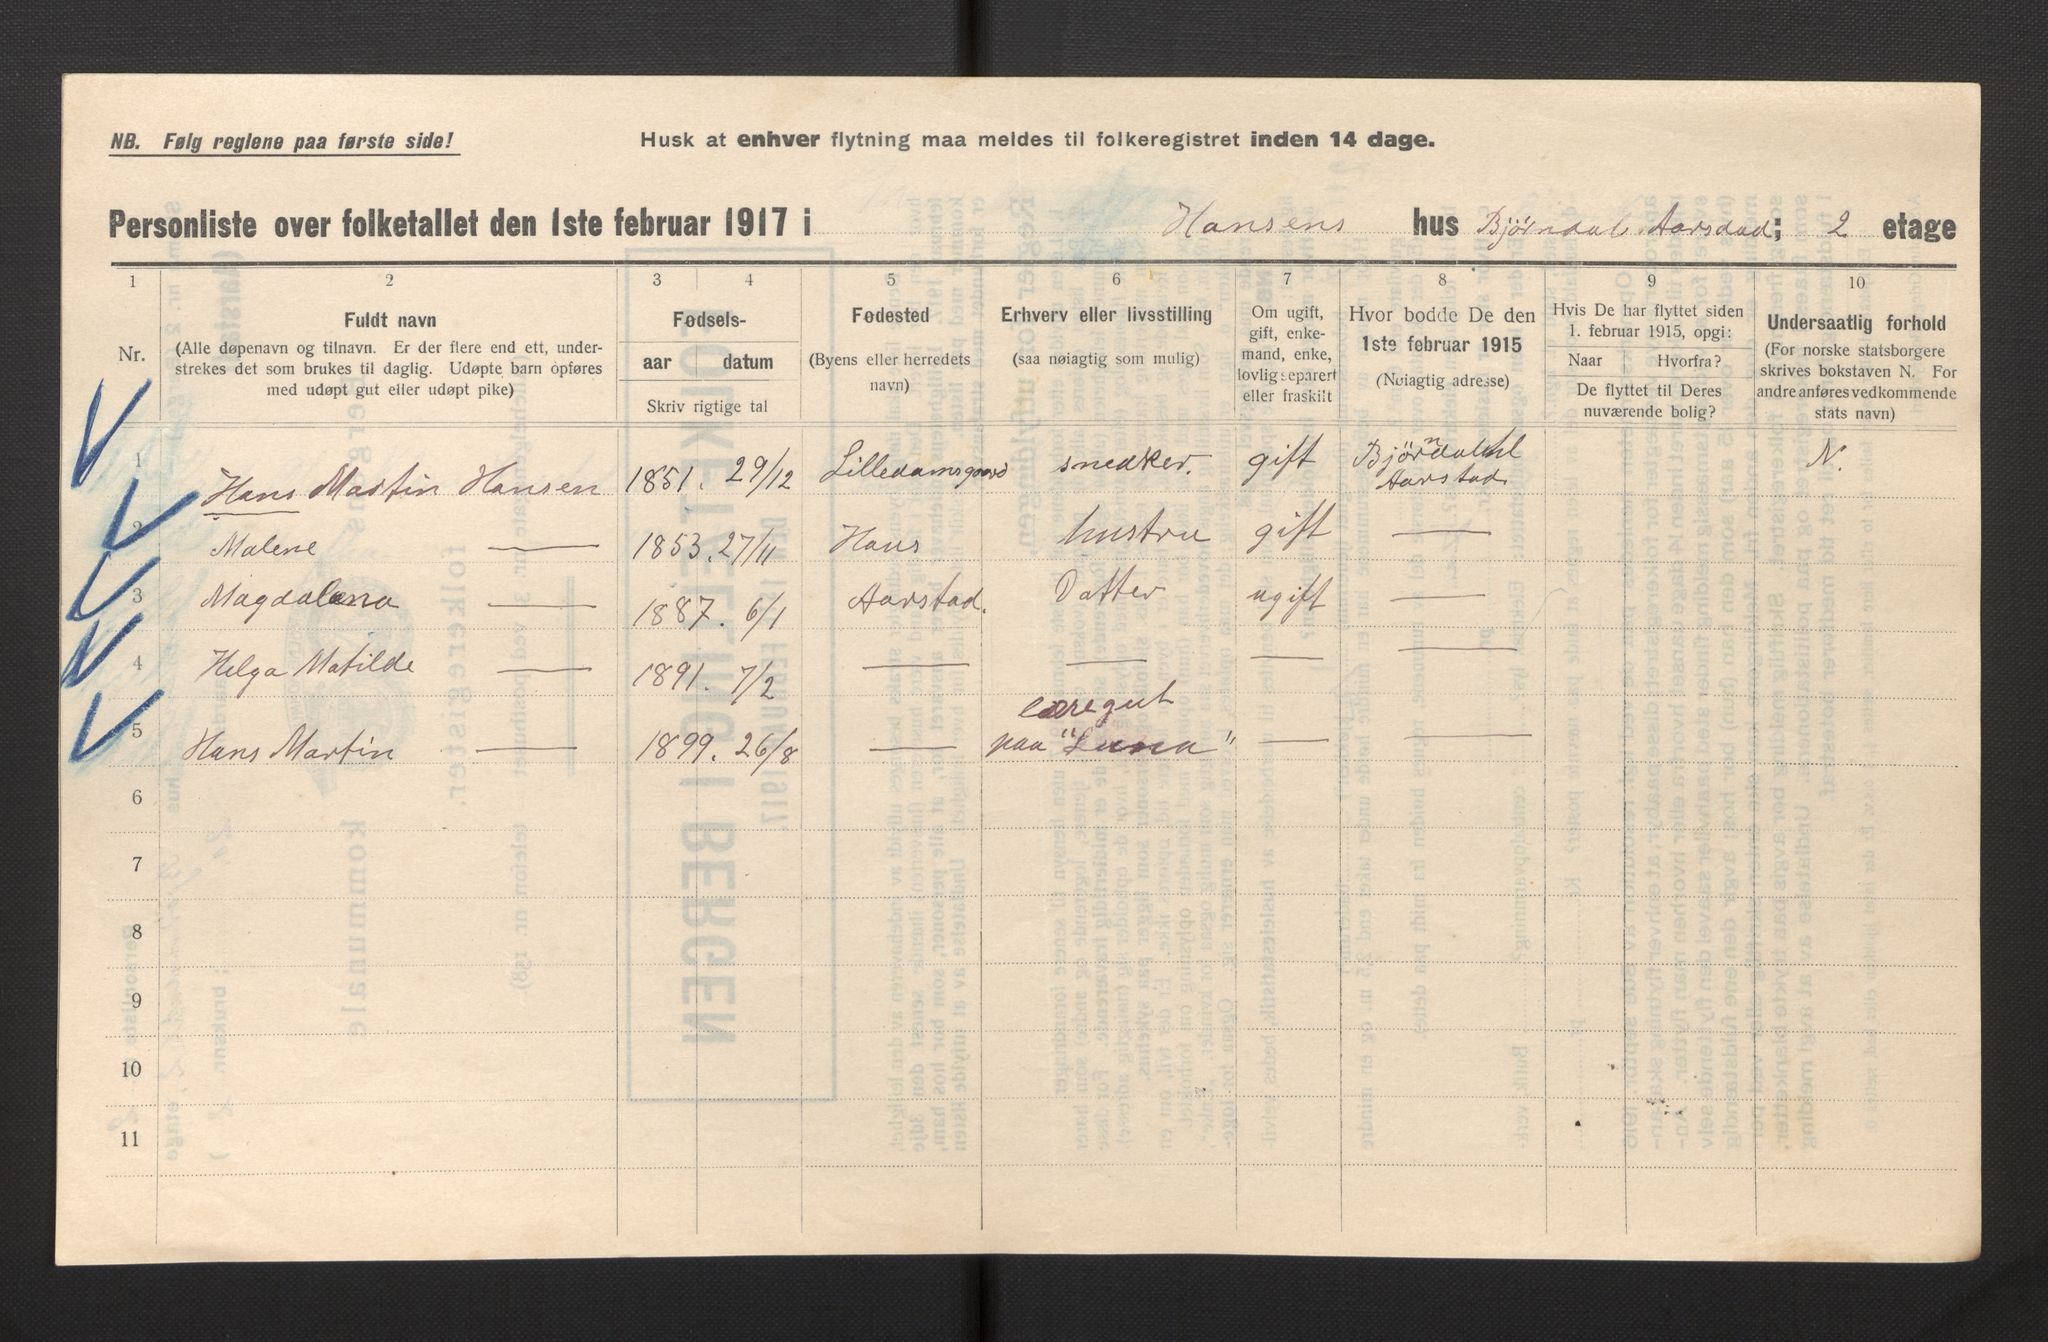 NB. Følg reglene paa første side!
Husk at enhver flytning maa meldes til folkeregistret inden 14 dage.
Personliste over folketallet den 1ste februar 1917 i Hansens hus Bjørndal Aarsdad; 2 etage
1 2 3 4 5 6 7 8 9 10
Nr.
Fuldt navn
(Alle døpenavn og tilnavn. Er der flere end ett, under-
strekes det som brukes til daglig. Udøpte barn opføres
med udøpt gut eller udøpt pike)
Fødsels-
aar datum
Skriv rigtige tal
Fødested
(Byens eller herredets
navn)
Erhverv eller livsstilling
(saa nøiagtig som mulig)
Om ugift,
gift, enke-
mand, enke,
lovlig separert
eller fraskilt
Hvor bodde De den
1ste februar 1915
(Nøiagtig adresse)
Hvis De har flyttet siden
1. februar 1915, opgi:
Naar Hvorfra?
De flyttet til Deres
nuværende bolig?
Undersaatlig forhold
(For norske statsborgere
skrives bokstaven N. For
andre anføres vedkommende
stats navn)
1 Hans Martin Hansen 1851. 29/12 Lilledamsgaard snedker. gift Bjørndal Aarstad N.
2 Malene — 1853. 27/11 Hans hustru gift —
3 Magdalena — 1887. 6/1 Aarstad. Datter ugift —
4 Helga Matilde 1891. 7/2 — — — —
5 Hans Martin — 1899. 26/8 — læregut paa "Luna" — —
6
7
8
9
10
11